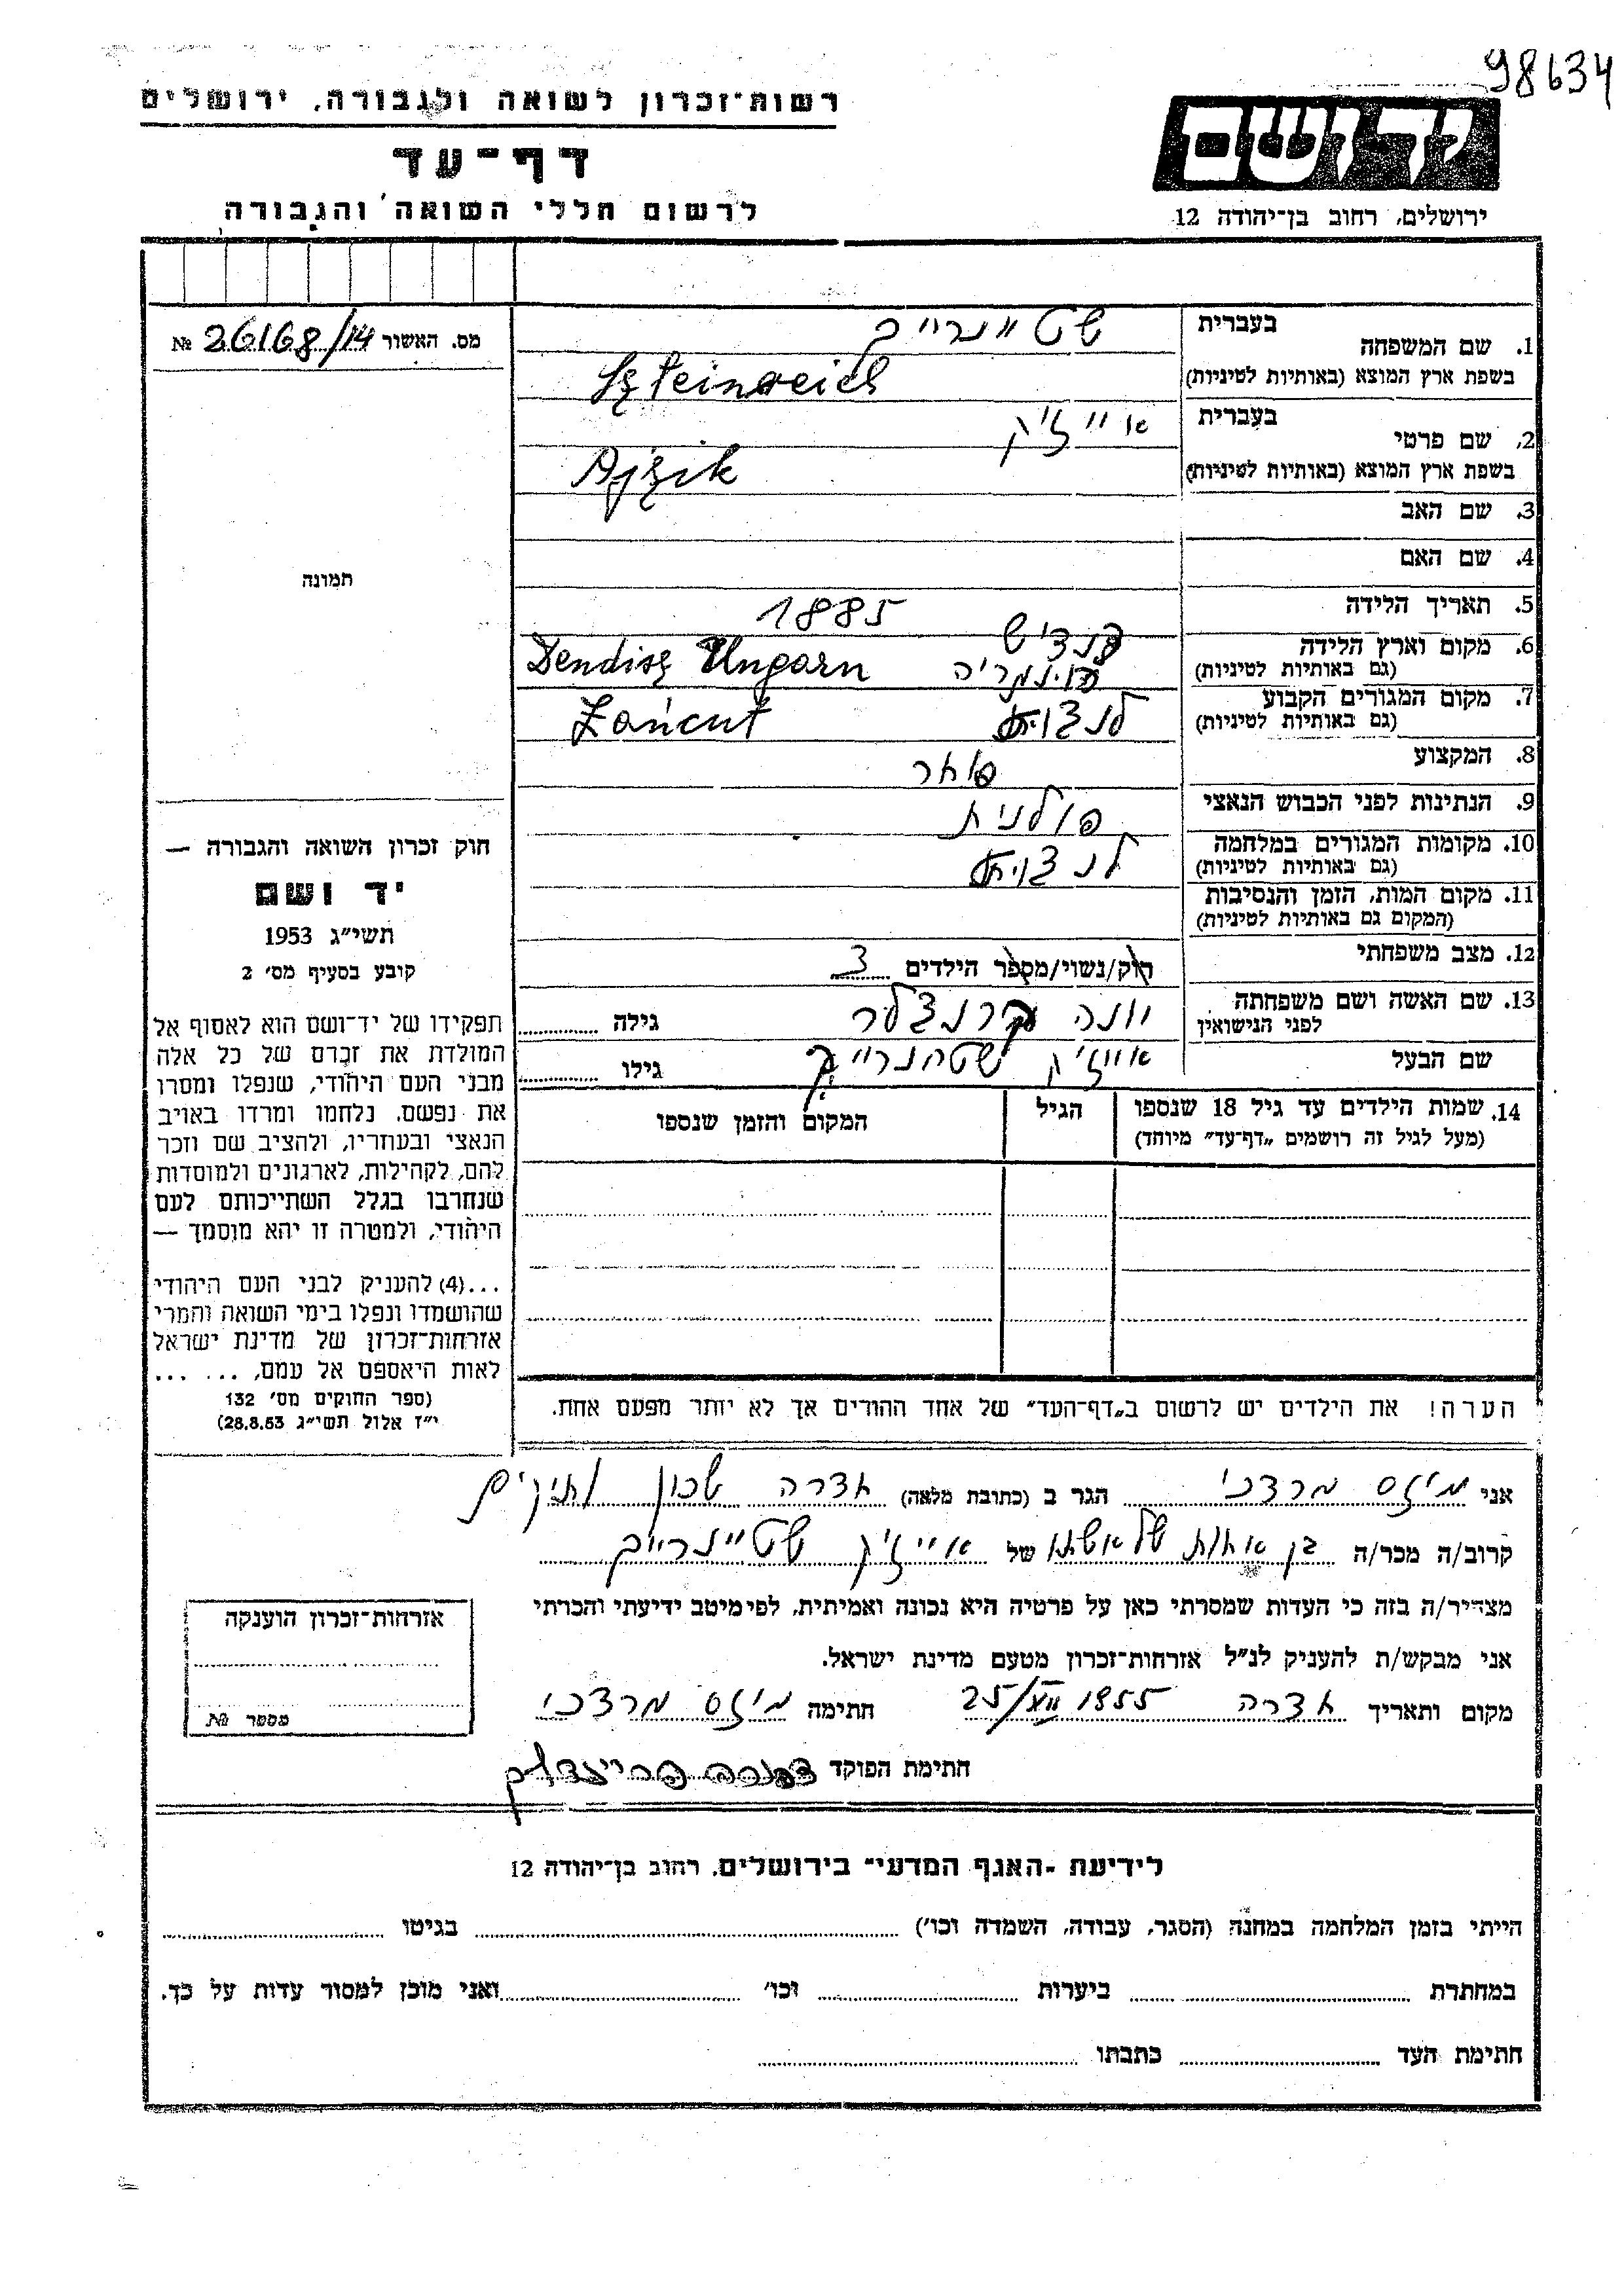 98634
רשות־זכרון לשואה ולגבורה, ירושלים
דף־עד
לרשום חללי השואה והגבורה
ידושם
ירושלים, רחוב בן־יהודה 12
מס. האשור № 26168/14
1. שם המשפחה בעברית שטיינרייך
בשפת ארץ המוצא (באותיות לטיניות) Szteinreich
2. שם פרטי בעברית אייזיק
בשפת ארץ המוצא (באותיות לטיניות) Ajzik
3. שם האב
4. שם האם
5. תאריך הלידה 1885
6. מקום וארץ הלידה
(גם באותיות לטיניות) Dendisz Ungarn
7. מקום המגורים הקבוע
(גם באותיות לטיניות) Łańcut
8. המקצוע סוחר
9. הנתינות לפני הכבוש הנאצי פולנית
10. מקומות המגורים במלחמה
(גם באותיות לטיניות)
11. מקום המות, הזמן והנסיבות
(המקום גם באותיות לטיניות)
12. מצב משפחתי רוק/נשוי/מספר הילדים 3
13. שם האשה ושם משפחתה
לפני הנישואין
גילה
שם הבעל אייזיק שטהנרייך גילו
14. שמות הילדים עד גיל 18 שנספו הגיל המקום והזמן שנספו
(מעל לגיל זה רושמים „דף־עד" מיוחד)
הערה! את הילדים יש לרשום ב„דף־העד" של אחד ההורים אך לא יותר מפעם אחת.
תמונה
חוק זכרון השואה והגבורה —
יד ושם
תשי"ג 1953
קובע בסעיף מס׳ 2
תפקידו של יד־ושם הוא לאסוף אל
המולדת את זכרם של כל אלה
מבני העם היהודי, שנפלו ומסרו
את נפשם, נלחמו ומרדו באויב
הנאצי ובעוזריו, ולהציב שם וזכר
להם, לקהילות, לארגונים ולמוסדות
שנחרבו בגלל השתייכותם לעם
היהודי, ולמטרה זו יהא מוסמך —
...(4) להעניק לבני העם היהודי
שהושמדו ונפלו בימי השואה והמרי
אזרחות־זכרון של מדינת ישראל
לאות היאספם אל עמם, ... ...
(ספר החוקים מס׳ 132
י"ז אלול תשי"ג 28.8.53)
אני מוזס מרדכי הגר ב (כתובת מלאה) אצרה שכון ותיקים
קרוב/ה מכר/ה בן אחות של אשתו של אייזיק שטיינרייך
מצהיר/ה בזה כי העדות שמסרתי כאן על פרטיה היא נכונה ואמיתית, לפי מיטב ידיעתי והכרתי
אני מבקש/ת להעניק לנ"ל אזרחות־זכרון מטעם מדינת ישראל.
מקום ותאריך אצרה 25/XII 1955 חתימה מוזס מרדכי
חתימת הפוקד
אזרחות־זכרון הוענקה
מספר №
לידיעת „האגף המדעי" בירושלים, רחוב בן־יהודה 12
הייתי בזמן המלחמה במחנה (הסגר, עבודה, השמדה וכו׳) בגיטו
במחתרת ביערות וכו׳ ואני מוכן למסור עדות על כך.
חתימת העד כתבתו